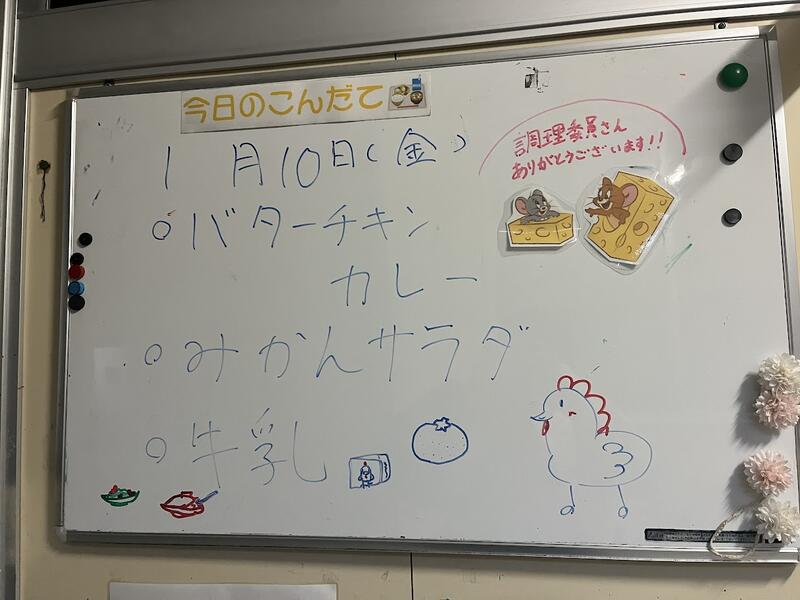 今日のこんだて
1月10日(金)
調理委員さん
ありがとうございます!!
○バターチキン
カレー
○みかんサラダ
○牛乳